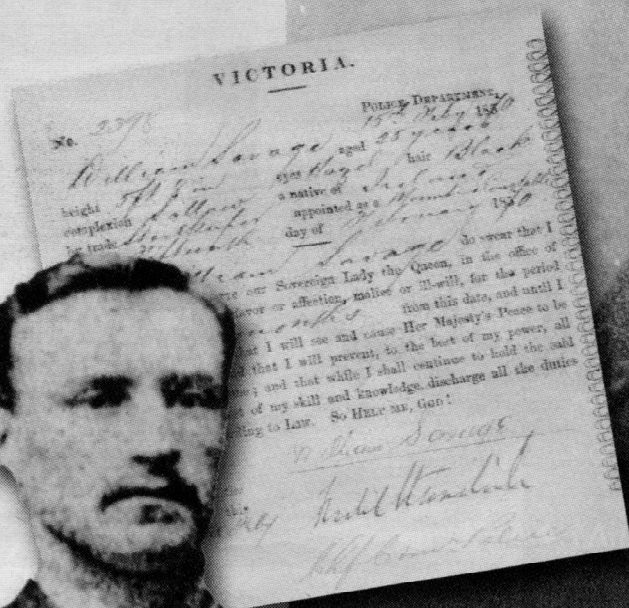 VICTORIA.
POLICE DEPARTMENT,
No. 2398 15th July 185
William Savage aged 25 years
height 5ft eyes Hazel hair Black
complexion Sallow a native of Ireland
by trade appointed as a Mounted Constable
day of 185
William Savage do swear that I
our Sovereign Lady the Queen, in the office of
favor or affection, malice or ill-will, for the period
months from this date, and until I
that I will see and cause Her Majesty's Peace to be
d that I will prevent, to the best of my power, all
; and that while I shall continue to hold the said
of my skill and knowledge, discharge all the duties
ding to Law. SO HELP ME, GOD!
William Savage
Standish
Chf Commr Police